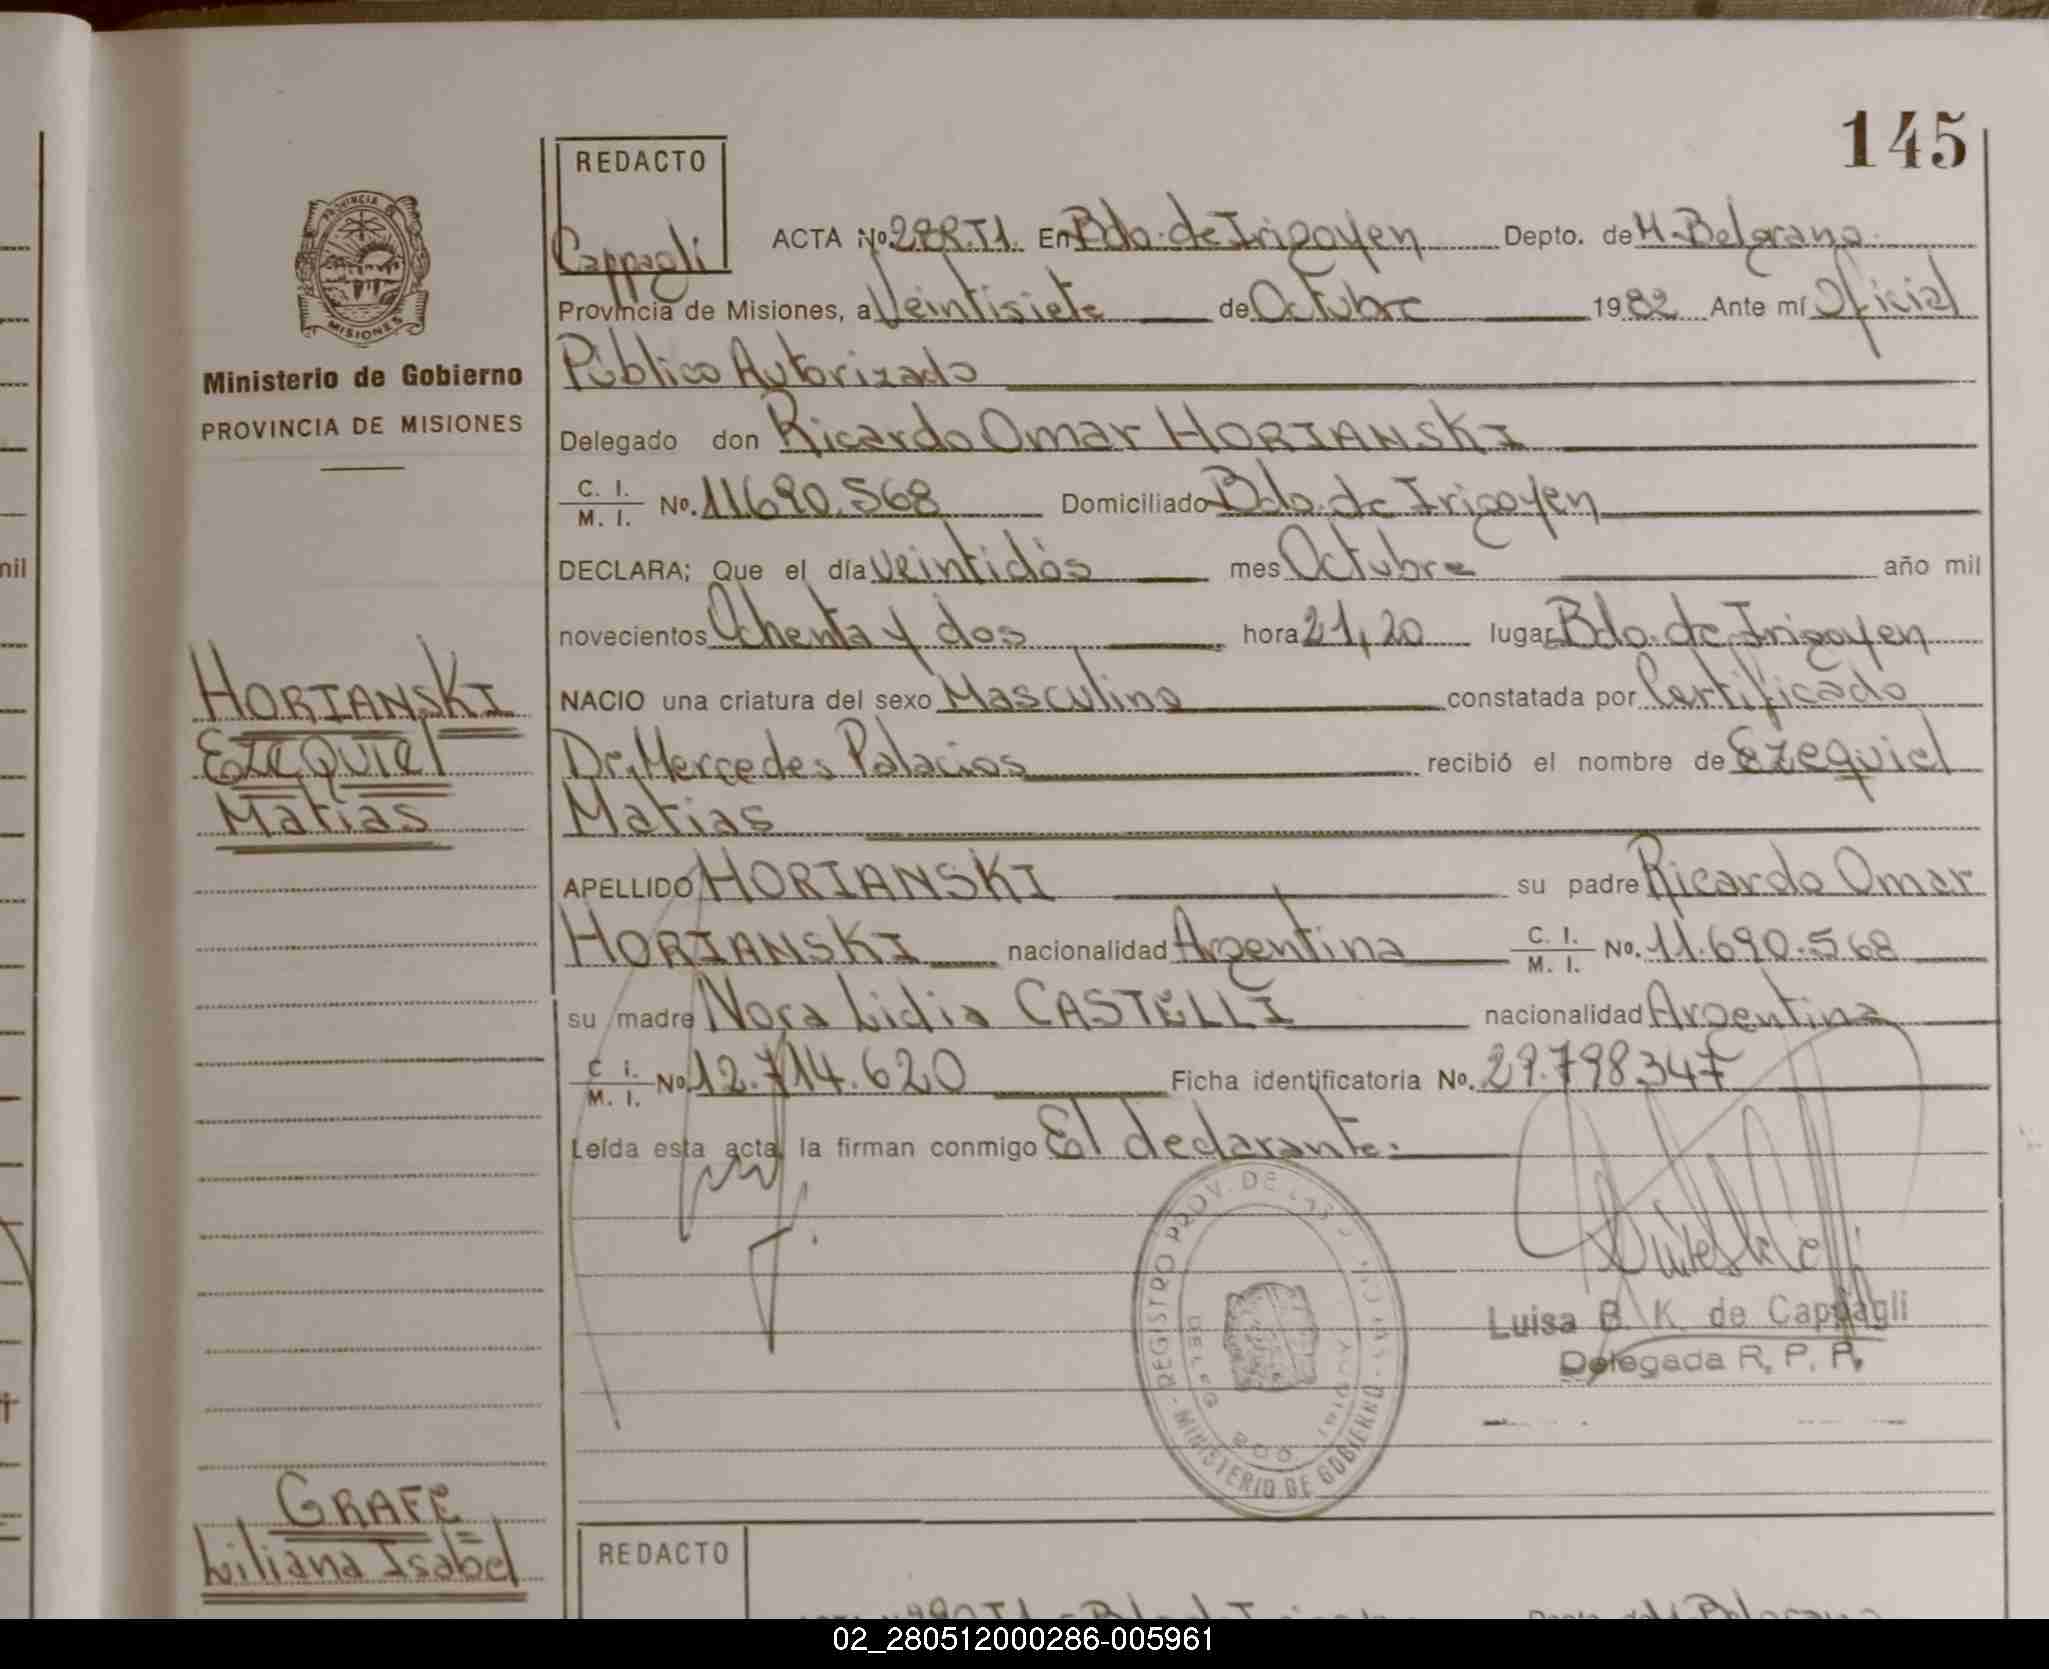 145
REDACTO
Cappagli
ACTA Nº 288.T1. En Bdo. de Irigoyen Depto. de M. Belgrano
Provincia de Misiones, a Veintisiete de Octubre 1982 Ante mí Oficial
Público Autorizado
Delegado don Ricardo Omar HORIANSKI
C. I. / M. I. No. 11690.568 Domiciliado Bdo. de Irigoyen
DECLARA; Que el día veintidós mes Octubre año mil
novecientos Ochenta y dos hora 21,20 lugar Bdo. de Irigoyen
NACIO una criatura del sexo Masculino constatada por Certificado
Dr. Mercedes Palacios recibió el nombre de Ezequiel
Matias
APELLIDO HORIANSKI su padre Ricardo Omar
HORIANSKI nacionalidad Argentina C. I. / M. I. No. 11.690.568
su madre Nora Lidia CASTELLI nacionalidad Argentina
C. I. / M. I. No. 12.714.620 Ficha identificatoria No. 29.798.347
Leída esta acta, la firman conmigo El declarante.
Luisa B. K. de Cappagli
Delegada R. P. P.
REGISTRO PROV. DE LAS PERSONAS - MINISTERIO DE GOBIERNO -
PROVINCIA DE
MISIONES
Ministerio de Gobierno
PROVINCIA DE MISIONES
HORIANSKI
Ezequiel
Matias
GRAFE
Liliana Isabel
REDACTO
nil
02_280512000286-005961